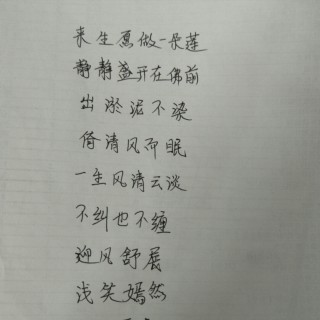 来生愿做一朵莲
静静盛开在佛前
出淤泥不染
倚清风而眠
一生风清云淡
不纠也不缠
迎风舒展
浅笑嫣然